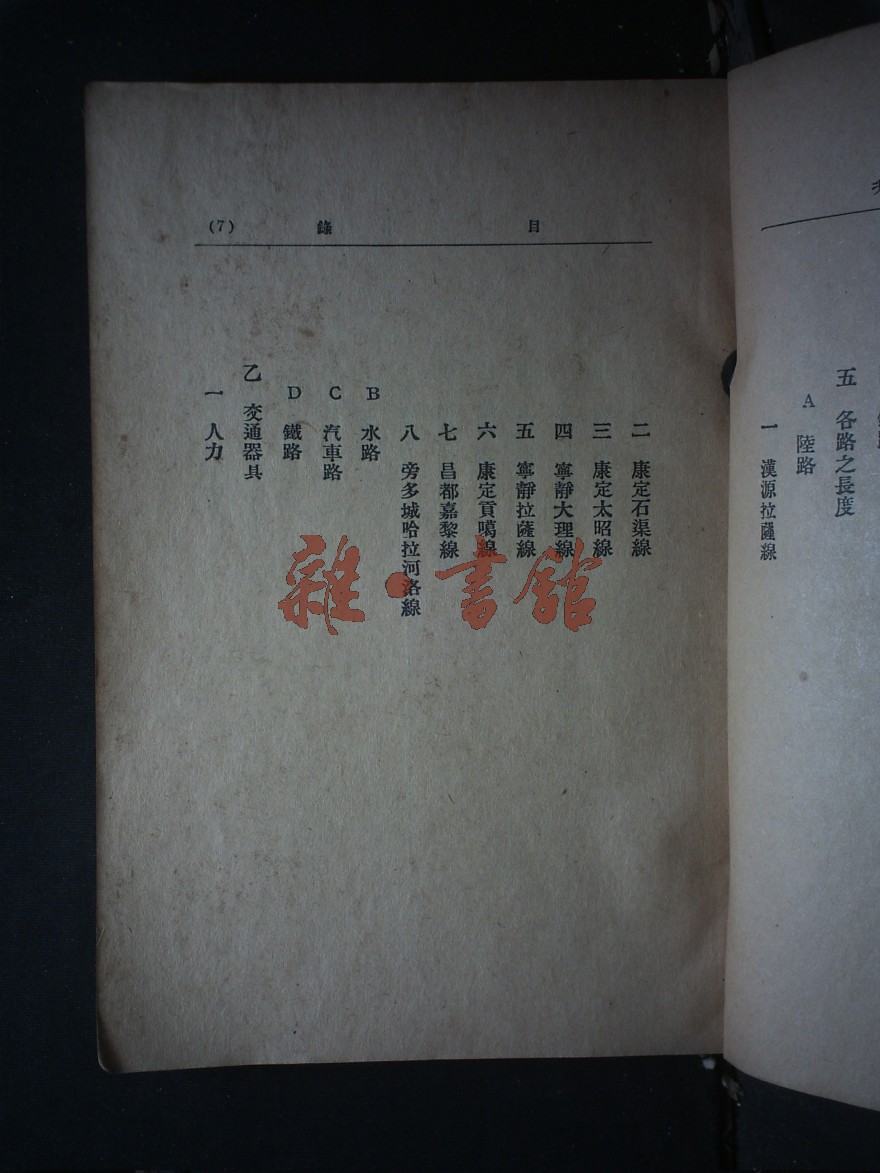 五 各路之長度
A 陸路
一 漢源拉薩線
目錄 (7)
二 康定石渠線
三 康定太昭線
四 寧靜大理線
五 寧靜拉薩線
六 康定貢噶線
七 昌都嘉黎線
八 旁多城哈拉河洛線
B 水路
C 汽車路
D 鐵路
乙 交通器具
一 人力
雜·書館